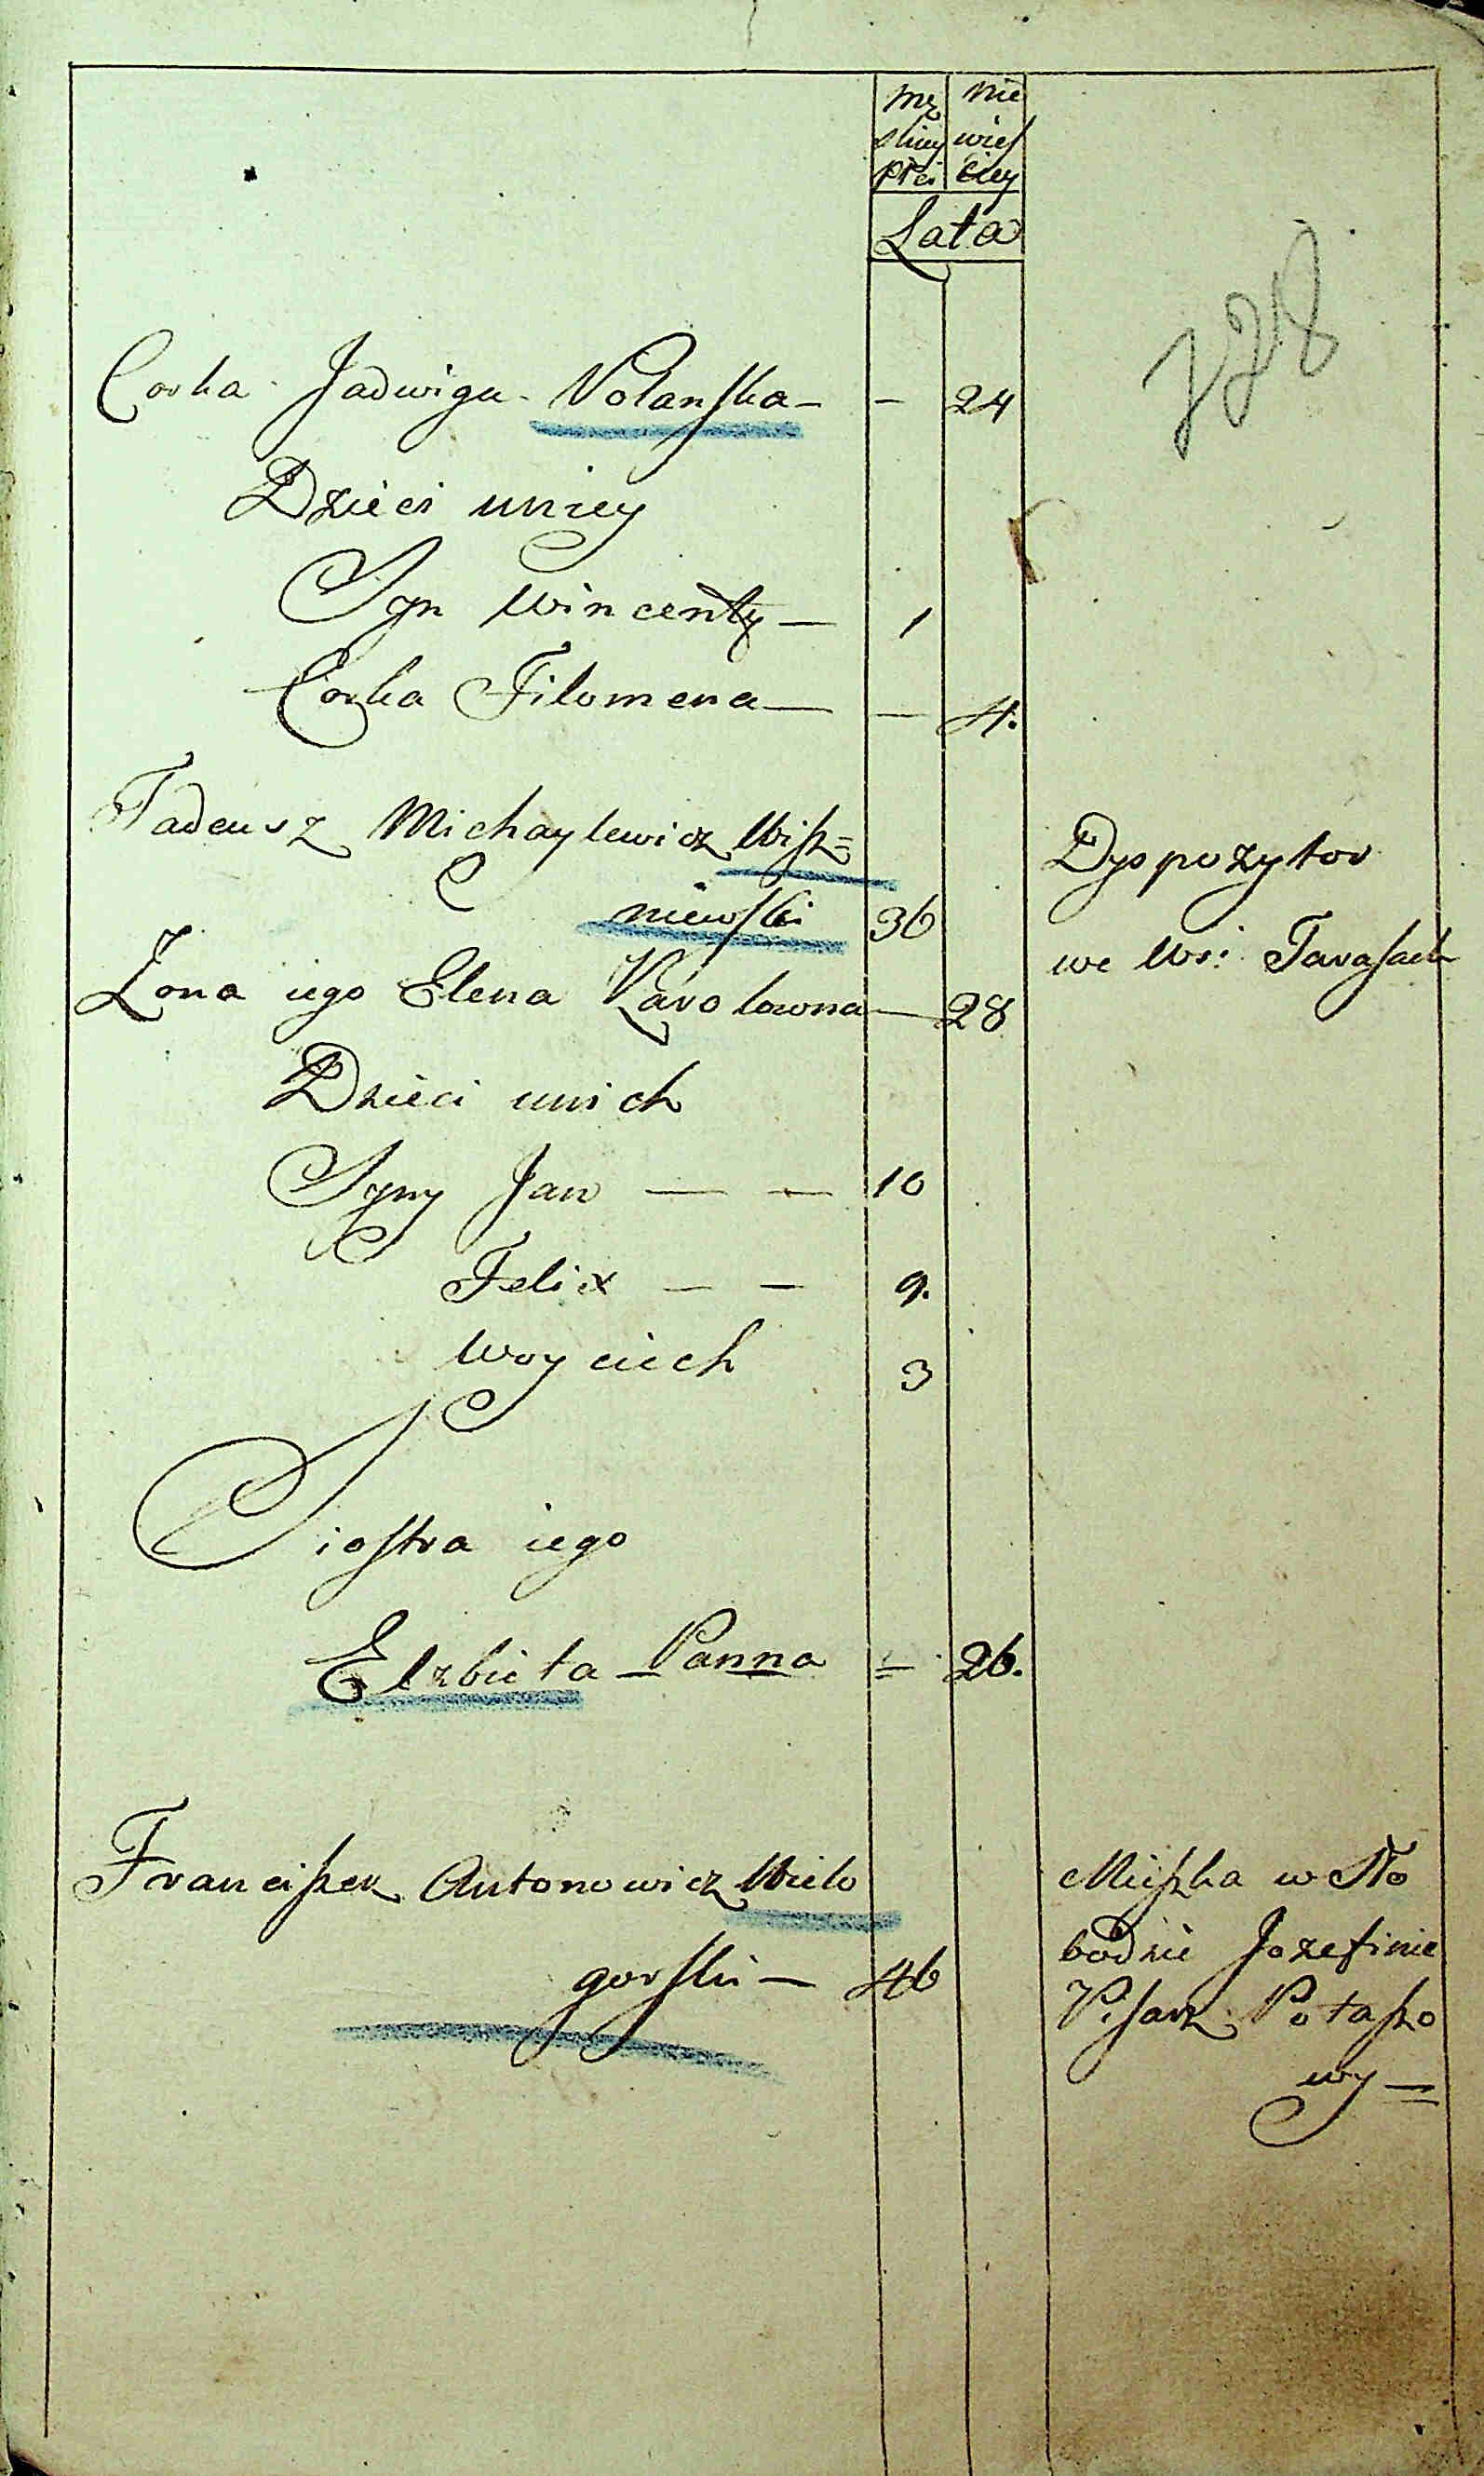 mę nie
skiey wies
płci ciey
Lata
Corka Jadwiga Volanska - - 24
Dzieci uniey
Syn Wincenty - 1
Corka Filomena - - 4.
Tadeusz Michaylewicz Wisz=
niewski 36
Dyspozytor
we Wsi Tarasach
Zona iego Elena Karolowna - 28
Dzieci unich
Syny Jan - - 10
Felix - - 9.
Woyciech 3
Siostra iego
Elzbieta - Panna = 26.
Franciszek Antonowicz Wielo
gorski - 46
Mieszka w Sło
bodzie Jozefinie
Pisarz Potaszo
wy =